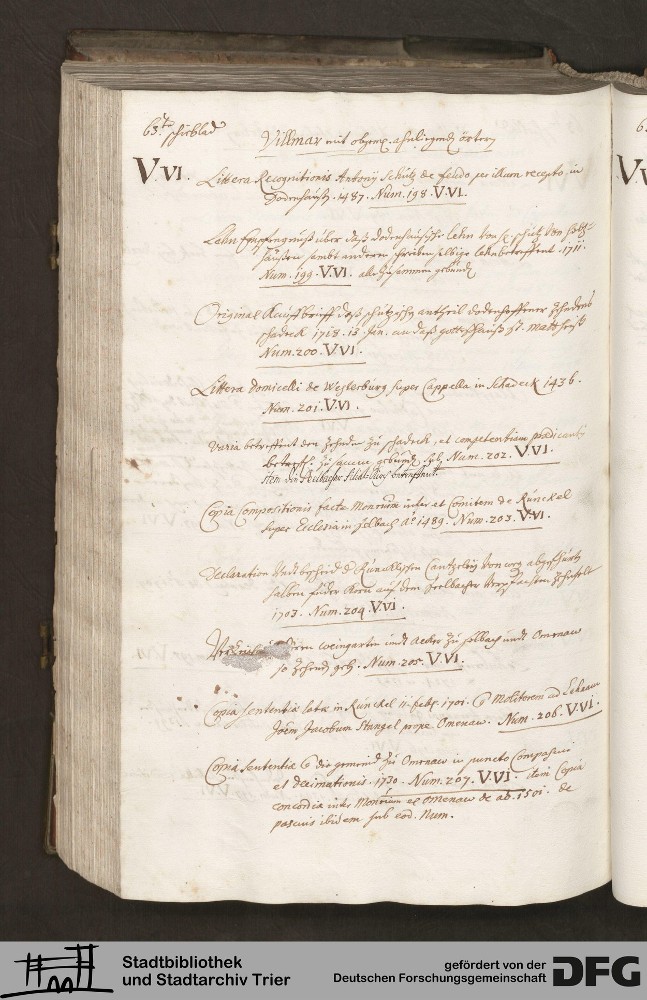 63.t schublad
Villmar mit obgem. anligenden örtern
V.VI. Littera Recognitionis Antonÿ Schütz de feudo per illum recepto, in
Dodenhaußen. 1487. Num. 198. V.VI.
Lehn Empfengnuß über daß dodenhausische lehn von schütz von holtz-
haußen sambt anderen selbige lehn betreffent. 1711.
Num. 199. V.VI. alle zusamen gebunden
Original Kauffbrieff daß schützische antheil dodenhoffener zehendens
schadeck 1718. 13. Jan. an daß gotteshauß St. Mattheis
Num. 200. V.VI.
Littera domicelli de Westerburg super Cappella in Schadeck 1436.
Num. 201. V.VI.
Varia betreffent den zehnden zu schadeck, et competentiam prædicantis
betreff. zusamen gebunden Num. 202. V.VI.
item den Seelbacher betreffent.
Copia Compositionis factæ inter et Comitem de Runckel
super Ecclesia in selbach aō 1489. Num. 203. V.VI.
Declaration Undt bescheid Runcklischen Cantzeley von weg
halben fuder Korn auß dem Seelbacher
1703. Num. 204. V.VI.
weingarten undt Aecker zu selbach undt Omenaw
so zehend geb. Num. 205. V.VI.
Copia sententiæ latæ in Runckel 11. feb. 1701. Molitorem ad
Joem Jacobum Stangel prope Omenaw. Num. 206. V.VI.
Copia sententiæ die gemeind zu Omenaw in puncto Compascui
et decimationis. 1730. Num. 207. V.VI. item Copia
concordiæ inter et Omenaw de aō. 1501. de
pascuis ibidem sub eod. Num.
6
V.V
Stadtbibliothek
und Stadtarchiv Trier
gefördert von der
Deutschen Forschungsgemeinschaft
DFG